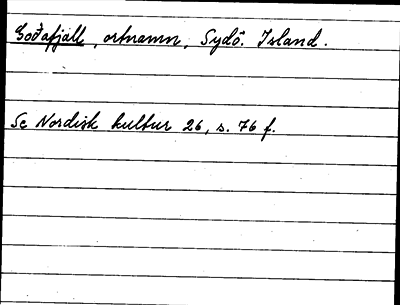 Goðafjall, ortnamn, Sydö. Island.
Se Nordisk kultur 26, s. 76 f.